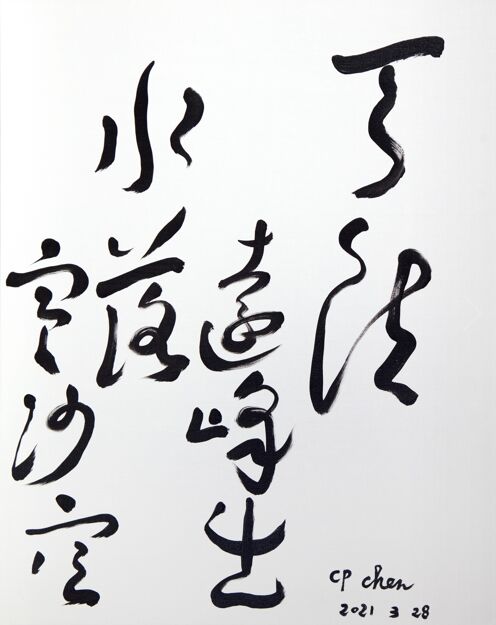 天清
遠峰出
水落
寒沙空
CP Chen
2021 3 28